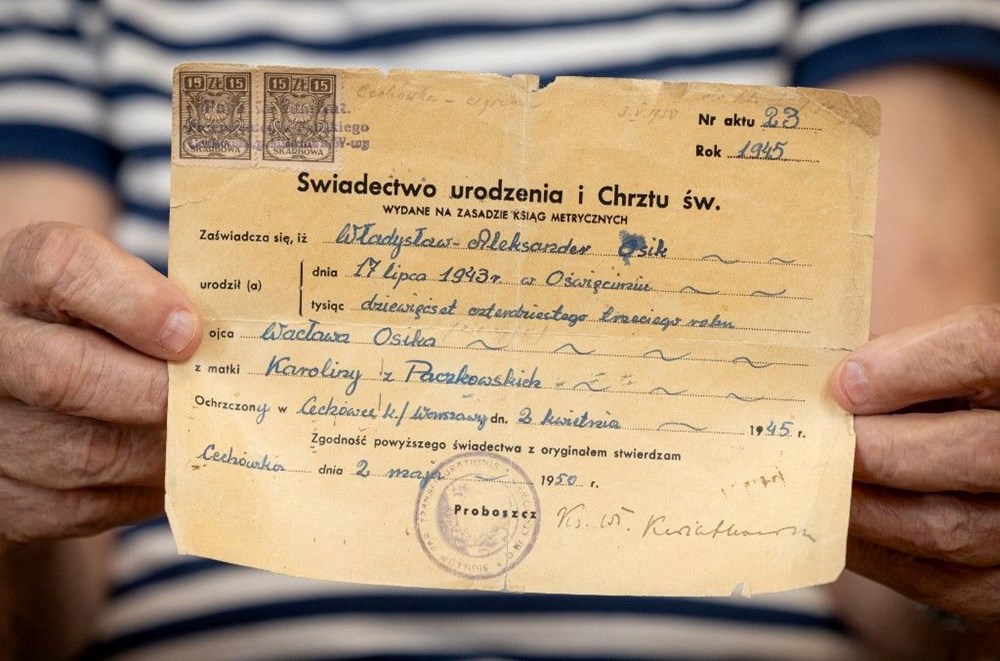 15 ZŁ 15 15 ZŁ 15
SKARBOWA SKARBOWA
Cechówka
3.V.1950
Nr aktu 23
Rok 1945
Świadectwo urodzenia i Chrztu św.
WYDANE NA ZASADZIE KSIĄG METRYCZNYCH
Zaświadcza się, iż Władysław-Aleksander Osik
urodził (a)
dnia 17 lipca 1943 r. w Oświęcimiu
tysiąc dziewięćset czterdziestego trzeciego roku
ojca Wacława Osika
z matki Karoliny z Paczkowskich
Ochrzczony w Cechówce k./Warszawy dn. 2 kwietnia 1945 r.
Zgodność powyższego świadectwa z oryginałem stwierdzam
Cechówka dnia 2 maja 1950 r.
Proboszcz Ks. Wł.